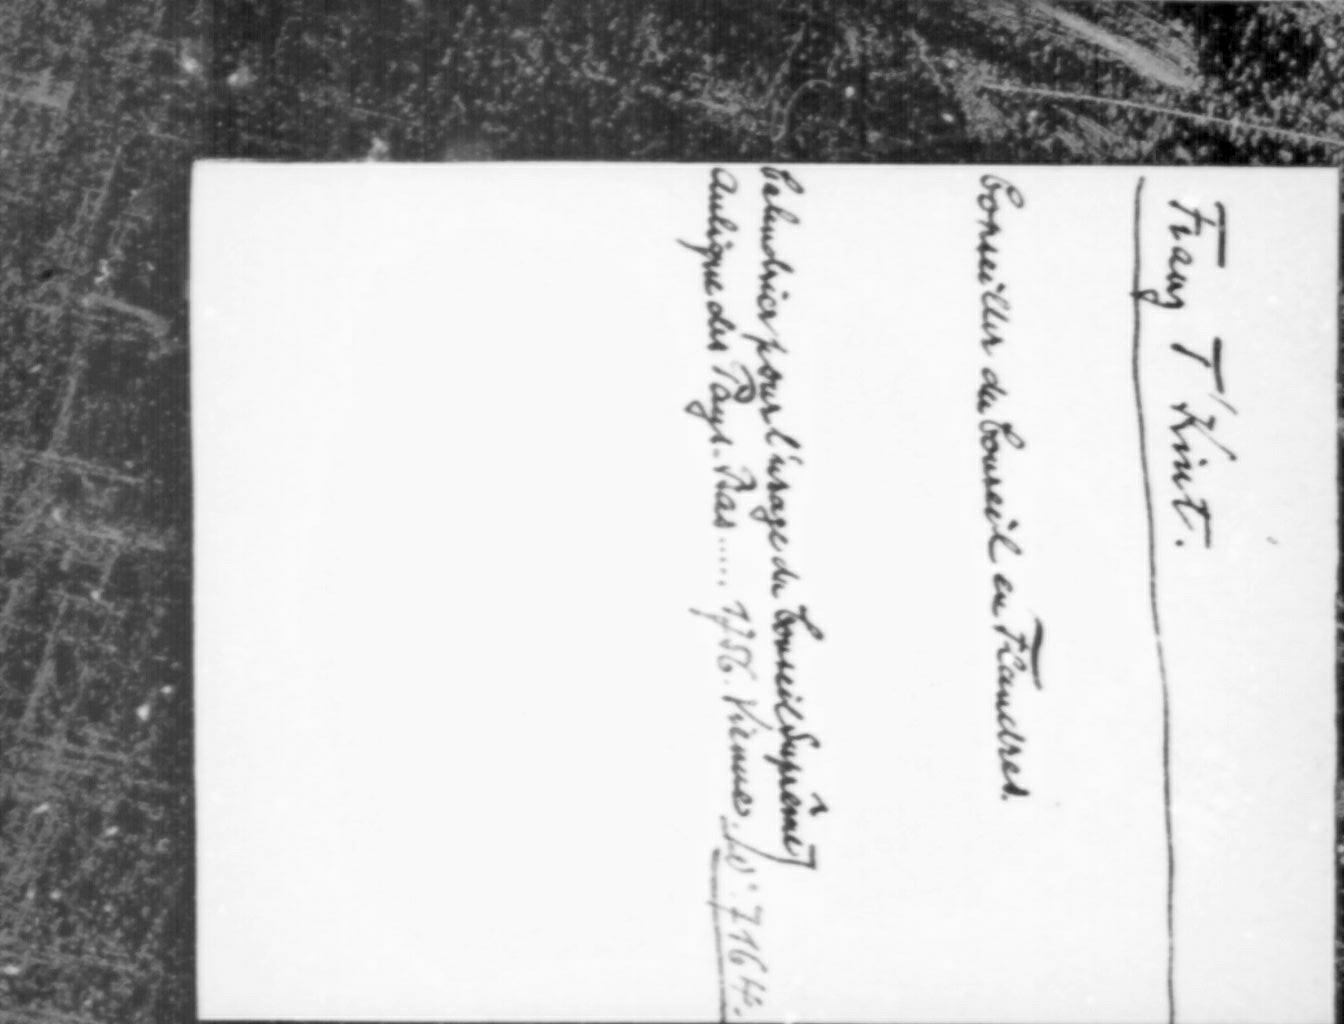 Franz T'Kint.
Conseiller du Conseil en Flandres.
Calendrier pour l'usage du Conseil Suprême
Aulique des Pays-Bas...... 1756. Vienne. W. 7164.